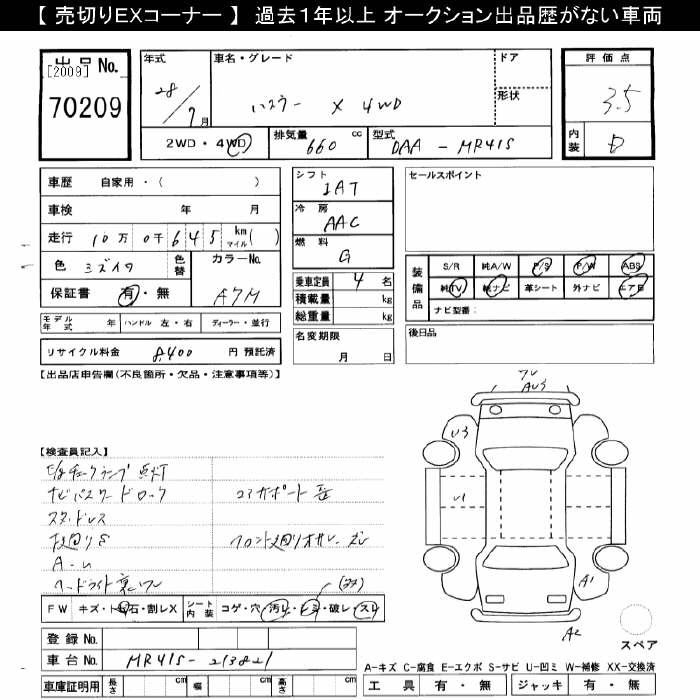 【 売切りEXコーナー 】 過去１年以上 オークション出品歴がない車両
出品 No.
[2009]
70209
年式
28/7月
車名・グレード
ハスラー X 4WD
ドア
形状
2WD・4WD
排気量 660 cc
型式 DAA - MR41S
評価点
3.5
内装 D
車歴 自家用・( )
車検 年 月
走行 10万 0千 645 km マイル ( )
色 ミズイロ 色替
カラーNo. A7M
保証書 有・無
モデル年式 年 ハンドル 左・右 ディーラー・並行
リサイクル料金 8,400 円 預託済
シフト IAT
冷房 AAC
燃料 G
乗車定員 4 名
積載量 kg
総重量 kg
名変期限
月 日
セールスポイント
装備品
S/R 純A/W P/S P/W ABS
純TV 純ナビ 革シート 外ナビ エアB
ナビ型番：
後日品
【出品店申告欄(不良箇所・欠品・注意事項等)】
【検査員記入】
E/gチェックランプ点灯
ナビパスワードロック
コアサポート
スタッドレス
下廻りS
フロント廻り
A-U
ヘードライト
FW キズ・ト石・割レX
シート内装 コゲ・穴・汚レ・シミ・破レ・スレ
登録 No.
車台 No. MR41S-213821
車庫証明用 長さ cm 幅 cm 高さ cm
U3
U1
A1
A2
スペア
A-キズ C-腐食 E-エクボ S-サビ U-凹ミ W-補修 XX-交換済
工具 有・無 ジャッキ 有・無